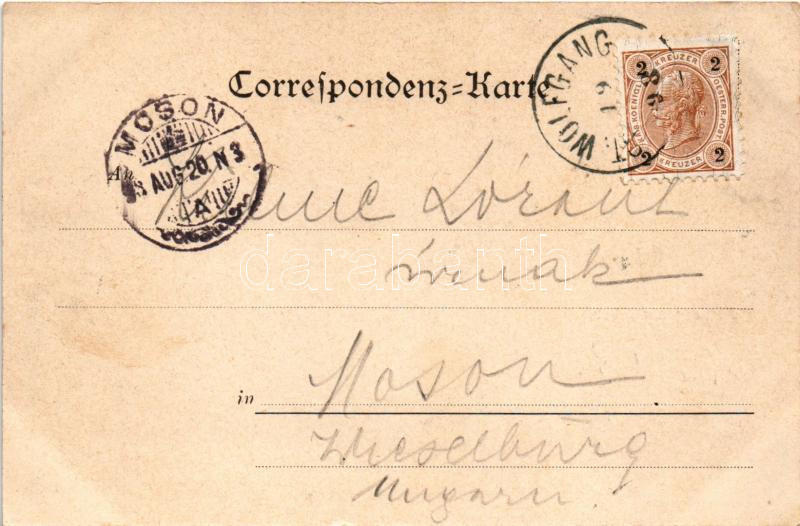 Correspondenz-Karte
WOLFGANG
19 8
2 KREUZER 2
KAIS. KOENIGL. OESTERR. POST.
2 KREUZER 2
MOSON
AUG 20. N 3
A
An
Lóránt
úrnak
darabanth
in Moson
Wieselburg
Ungarn